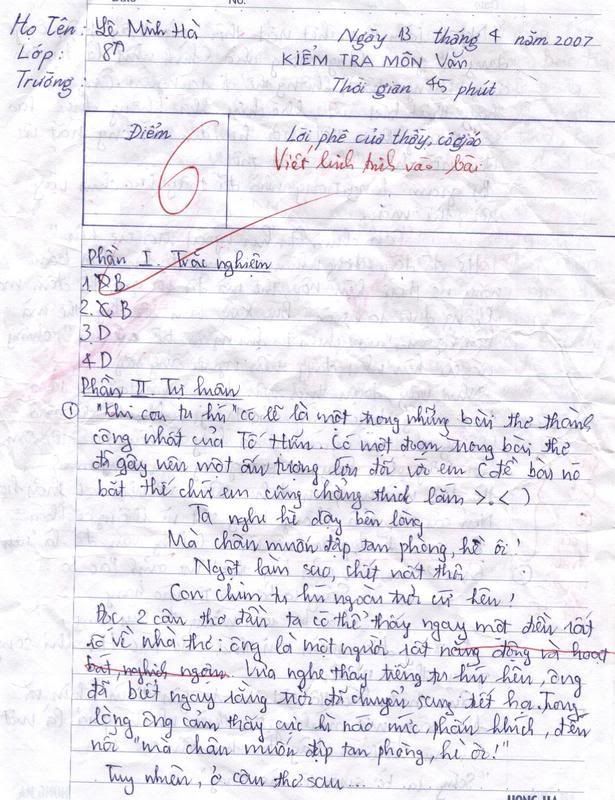 Họ Tên: Lê Minh Hà
Ngày 13 tháng 4 năm 2007
Lớp: 8
KIỂM TRA MÔN Văn
Trường:
Thời gian 45 phút
Điểm
Lời phê của thầy, cô giáo
6
Viết linh tinh vào bài
Phần I. Trắc nghiệm
1. B
2. B
3. D
4 D
Phần II. Tự luận
① "Khi con tu hú" có lẽ là một trong những bài thơ thành
công nhất của Tố Hữu. Có một đoạn trong bài thơ
đã gây nên một ấn tượng lớn đối với em (đề bài nó
bắt thế chứ em cũng chẳng thích lắm >.<)
Ta nghe hè dậy bên lòng
Mà chân muốn đạp tan phòng, hè ôi!
Ngột làm sao, chết uất thôi
Con chim tu hú ngoài trời cứ kêu!
Đọc 2 câu thơ đầu ta có thể thấy ngay một điều rất
rõ về nhà thơ: ông là một người rất năng động và hoạt
bát, nghịch ngợm. Vừa nghe thấy tiếng tu hú kêu, ông
đã biết ngay rằng trời đã chuyển sang tiết hạ. Trong
lòng ông cảm thấy cực kì náo nức, phấn khích, đến
nỗi "mà chân muốn đạp tan phòng, hè ôi!"
Tuy nhiên, ở câu thơ sau...
HONG HA